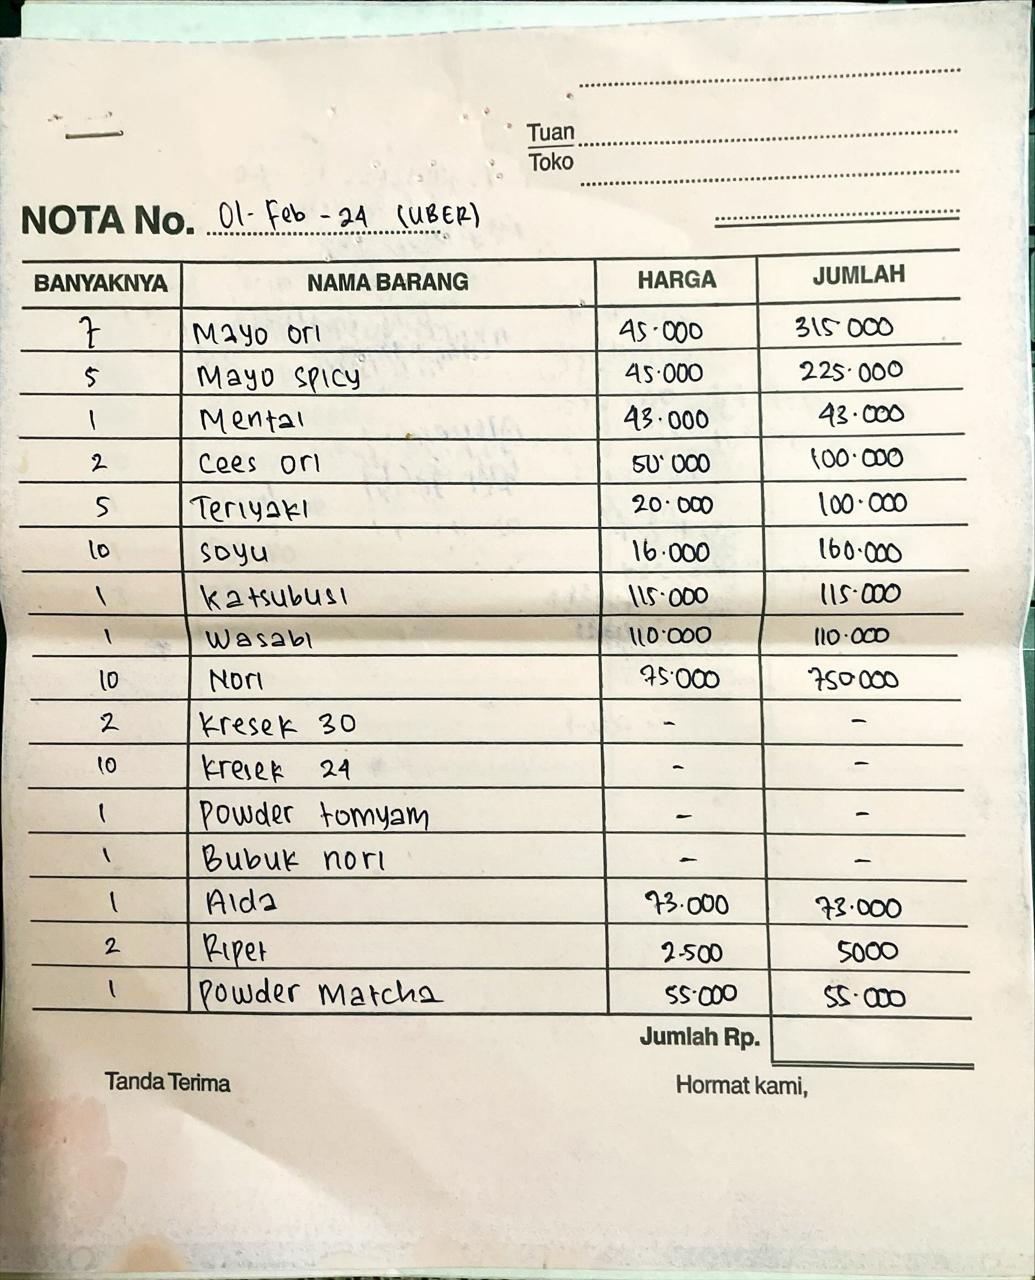 Tuan
Toko
NOTA No. 01-Feb-24 (UBER)
BANYAKNYA NAMA BARANG HARGA JUMLAH
7 Mayo ori 45.000 315.000
5 Mayo spicy 45.000 225.000
1 Mentai 43.000 43.000
2 Cees ori 50.000 100.000
5 Teriyaki 20.000 100.000
10 soyu 16.000 160.000
1 Katsubusi 115.000 115.000
1 Wasabi 110.000 110.000
10 Nori 75.000 750.000
2 Kresek 30 - -
10 Kresek 24 - -
1 Powder tomyam - -
1 Bubuk nori - -
1 Aida 73.000 73.000
2 Ripet 2.500 5000
1 Powder Matcha 55.000 55.000
Jumlah Rp.
Tanda Terima Hormat kami,